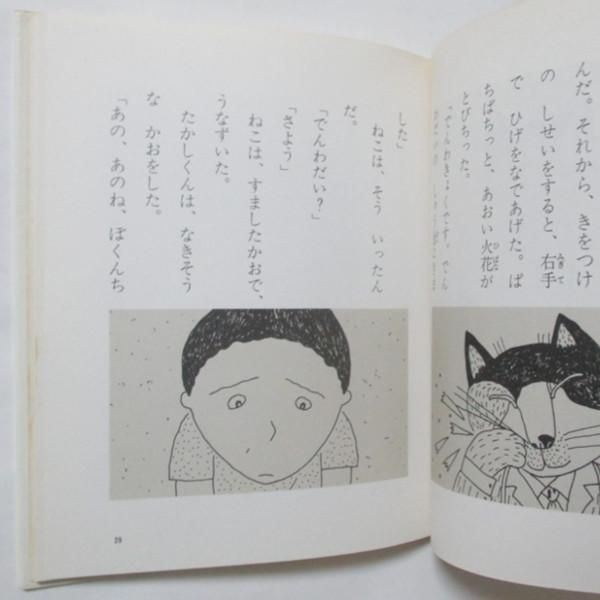 んだ。それから、きをつけ
の しせいをすると、右手
で ひげをなであげた。ぱ
ちぱちっと、あおい火花が
とびちった。
「でんわきょくです。でん
した」
ねこは、そう いったん
だ。
「でんわだい?」
「さよう」
ねこは、すましたかおで、
うなずいた。
たかしくんは、なきそう
な かおをした。
「あの、あのね、ぼくんち
29